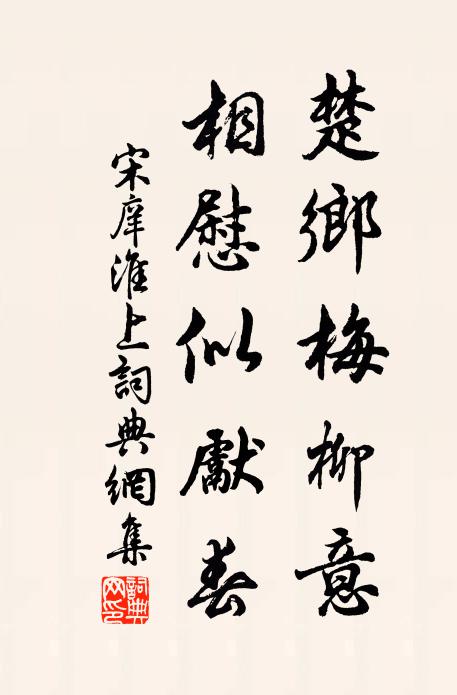 楚鄉梅柳意
相慰似獻春
宋庠淮上詞典網集
詞典網印